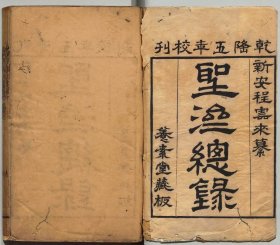 乾隆五年校刊
新安程雲來纂
聖濟總錄
素堂藏板